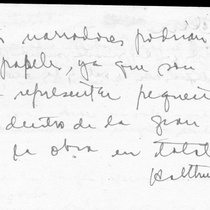 narradores podrían
papeles, ya que son
representar pequeñ
dentro de la gran
la obra en total